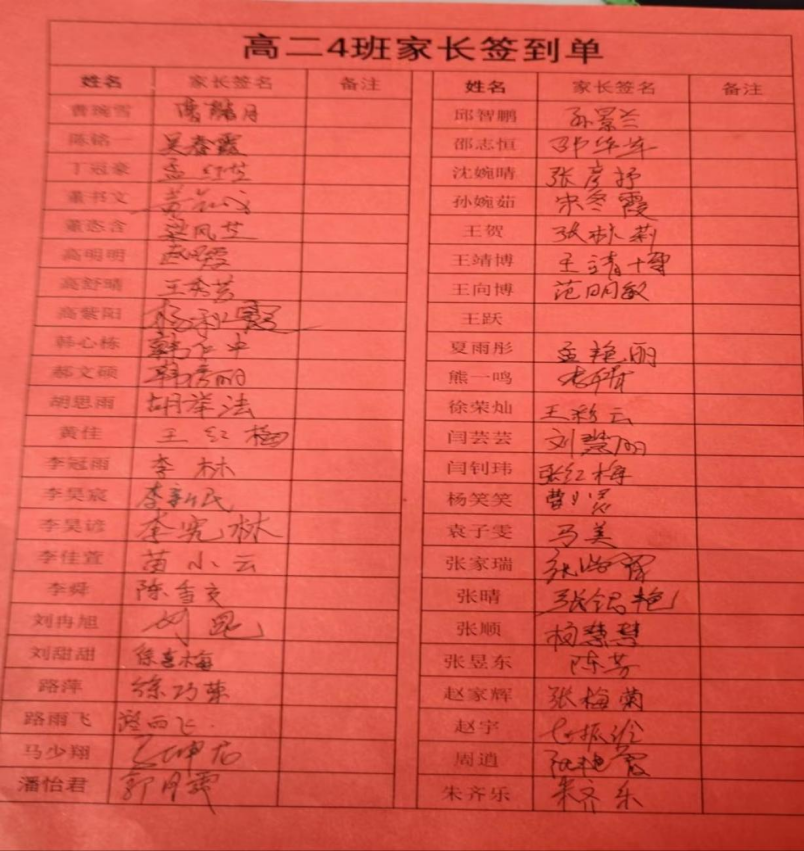 高二4班家长签到单
姓名 家长签名 备注 姓名 家长签名 备注
曹琬雪 邱智鹏 孙景兰
陈铭一 吴春霞 邵志恒 邵华峰
丁冠豪 孟红芝 沈婉晴 张彦抒
董书文 孙婉茹 宋冬霞
董恣含 梁凤芝 王贺 张林莉
高明明 王靖博
高舒晴 王秀芳 王向博 范明敏
高紫阳 王跃
韩心栋 夏雨彤 孟艳丽
郝文硕 韩倩丽 熊一鸣
胡思雨 胡举法 徐荣灿 王彩云
黄佳 王红梅 闫芸芸 刘慧丽
李冠雨 李林 闫钊玮 张红梅
李昊宸 李新民 杨笑笑
李昊谚 李宪林 袁子雯 马美
李佳萱 苗小云 张家瑞
李舜 陈雪交 张晴
刘冉旭 张顺 杨慧慧
刘甜甜 张昱东 陈芳
路萍 徐巧荣 赵家辉 张梅菊
路雨飞 路西飞 赵宇
马少翔 周逍 张艳霞
潘怡君 郭月霞 朱齐乐 朱齐乐